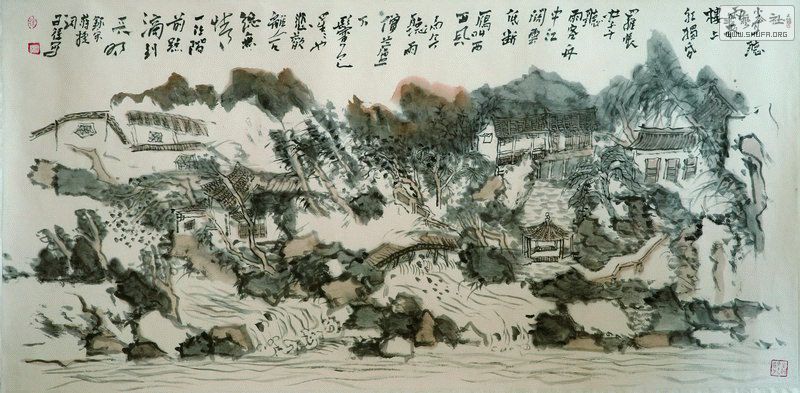 聽
樓上
紅燭昏
羅帳
壯年
聽
雨客舟
中江
闊雲
低斷
雁叫西
風
而今
聽雨
僧廬
下
鬢已
星星也
悲歡
離合
總無
情
一任階
前點
滴到
天明
錄宋
蔣捷
詞
WWW.SHUFA.ORG